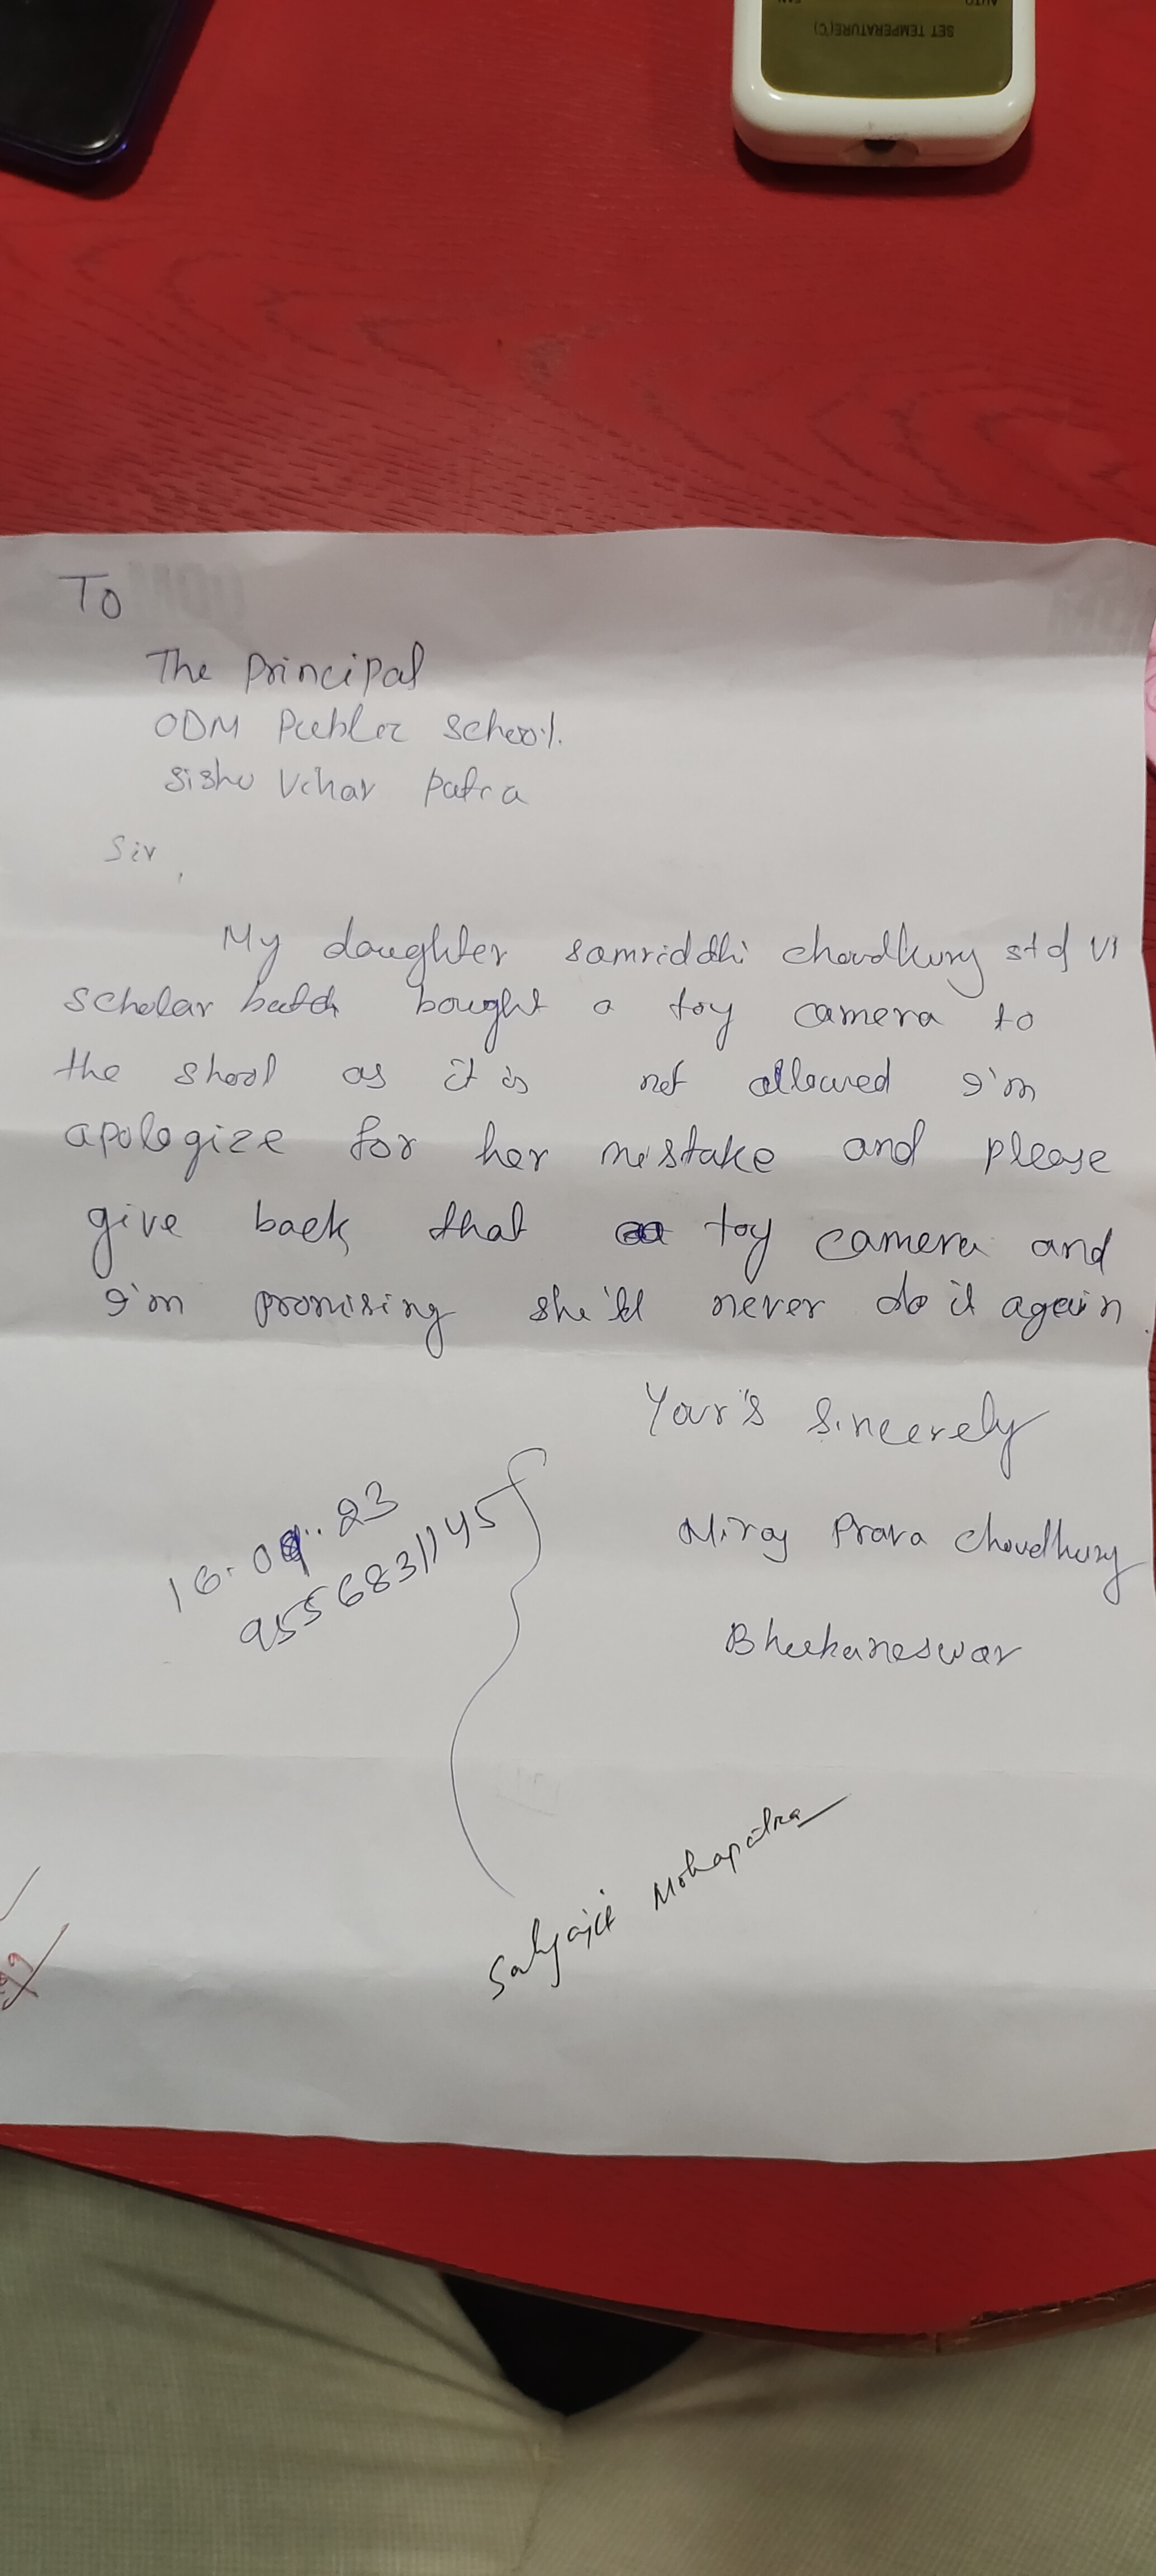 SET TEMPERATURE(°C)
AUTO
FAN
To
The Principal
ODM Public School.
Sishu Vihar Patra
Sir,
My daughter samriddhi choudhury std VI
scholar batch bought a toy camera to
the shool as it is not allowed I'm
apologize for her mistake and please
give back that toy camera and
I'm promising she'll never do it again.
Your's sincerely
Niroj Prava Choudhury
Bhubaneswar
16.09.23
9556831145
Satyajit Mohapatra